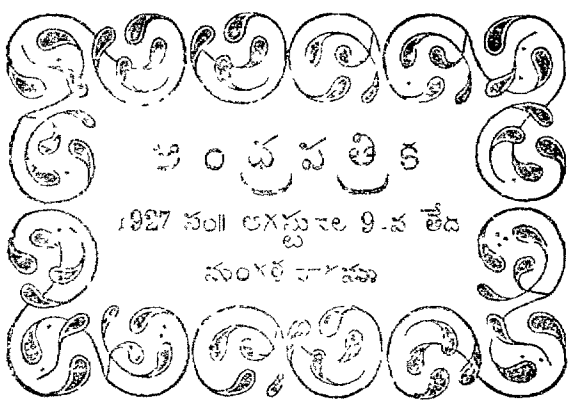 ఆంధ్రపత్రిక
1927 సం॥ ఆగస్టు నెల 9-వ తేది
మంగళవారము